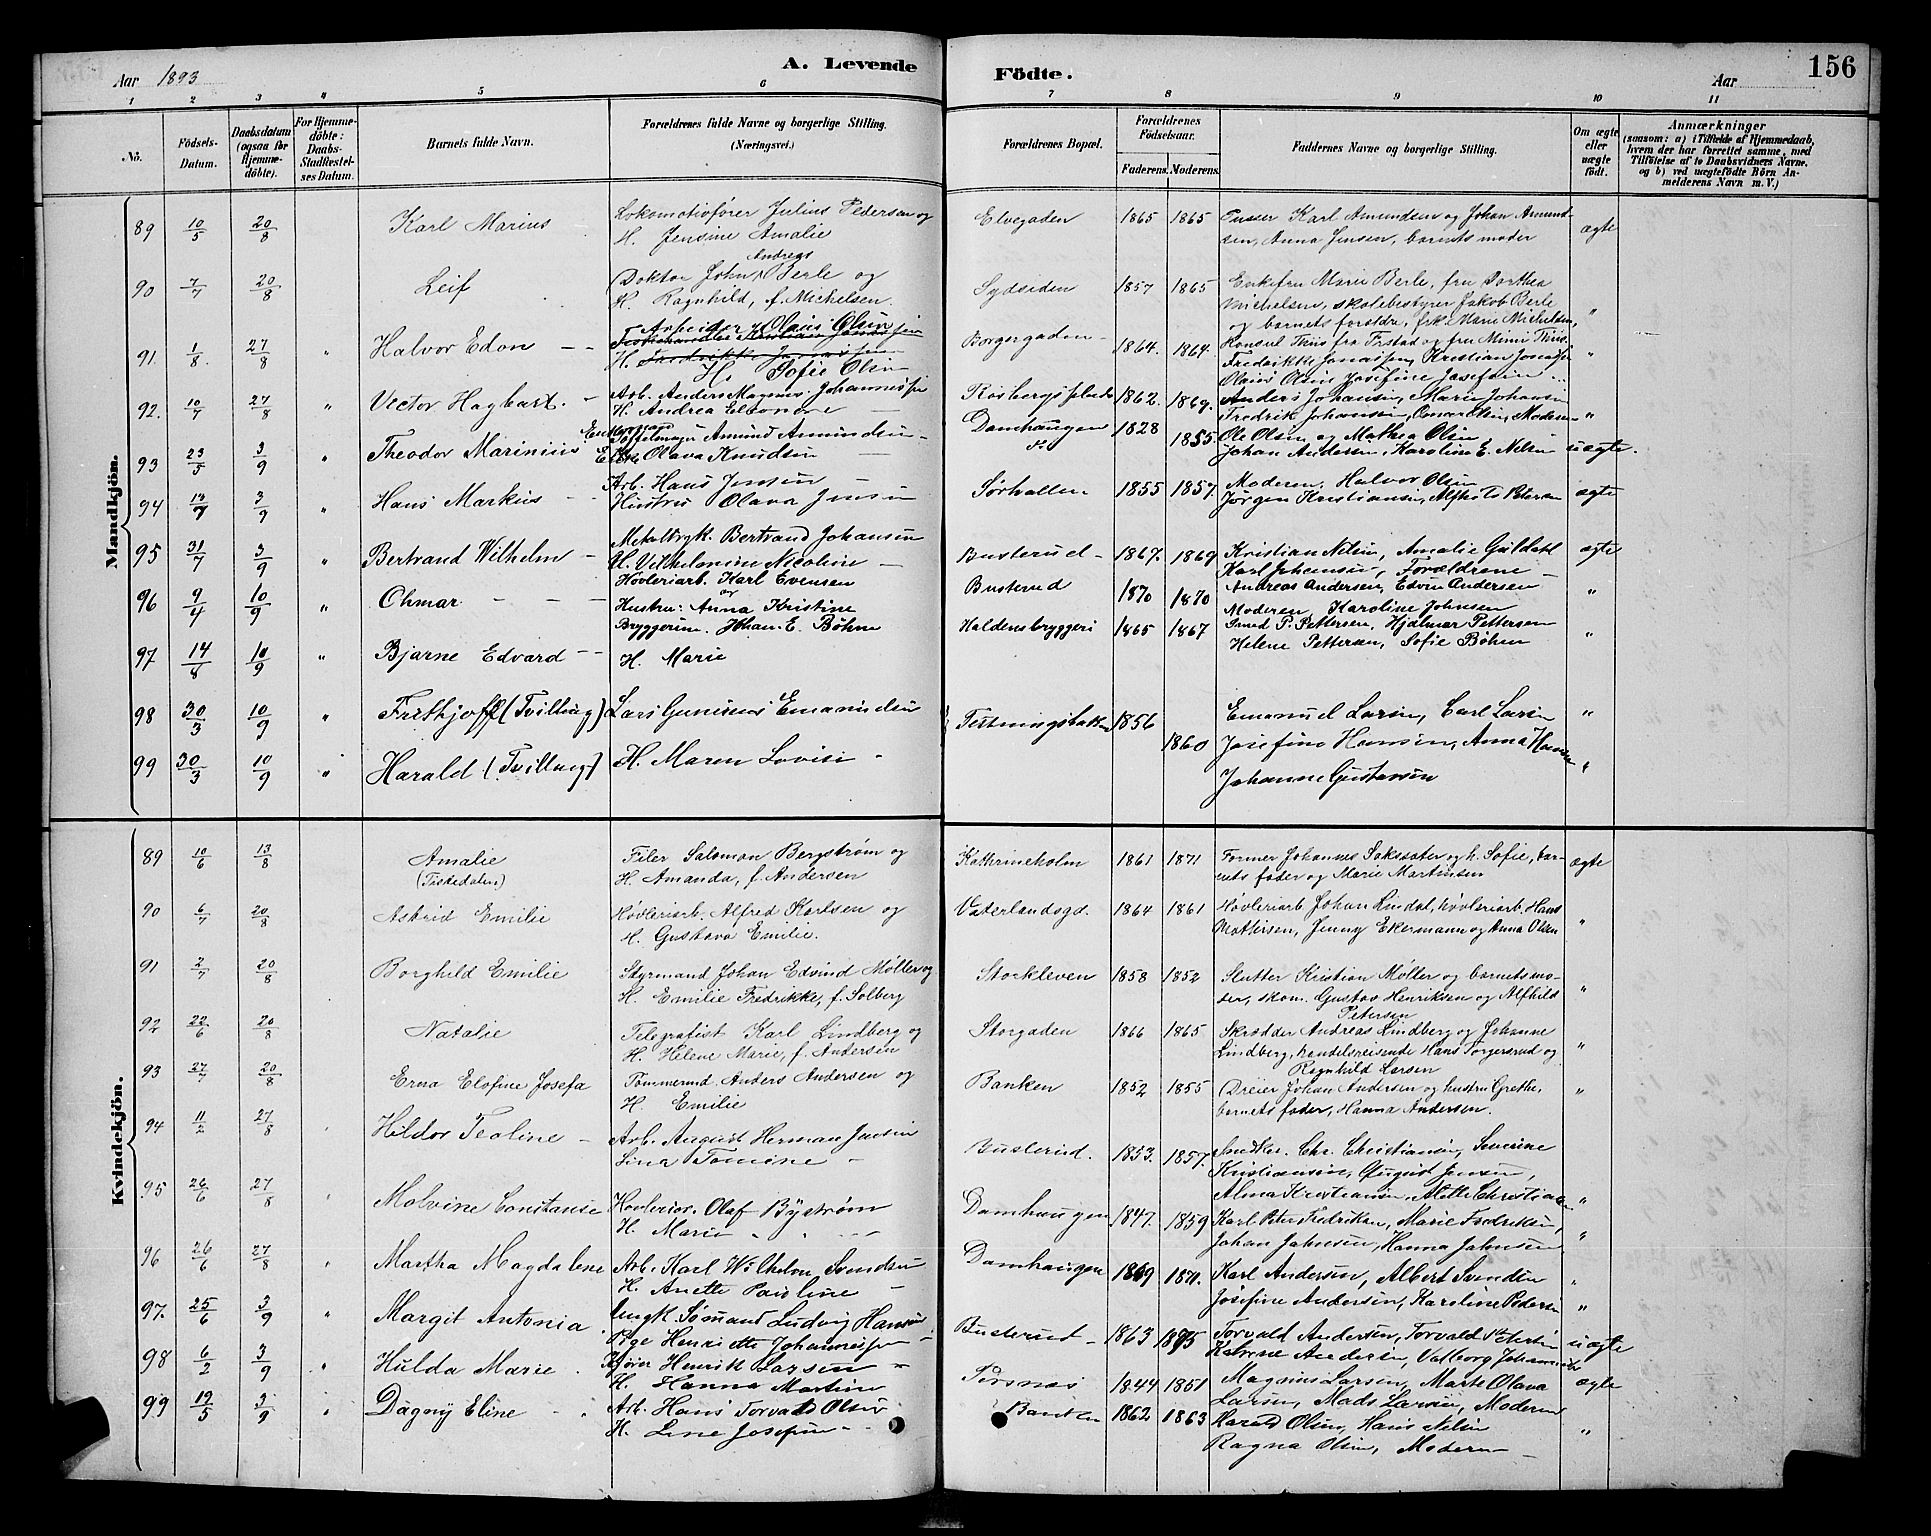 Aar 1893
A. Levende
Födte.
Aar
156
1 2 3 4 5 6 7 8 9 10 11
No.
Födsels-Datum.
Daabsdatum (ogsaa for Hjemmedöbte).
For Hjemmedöbte: Daabs-Stadfæstelses Datum.
Barnets fulde Navn.
Forældrenes fulde Navne og borgerlige Stilling. (Næringsvei.)
Forældrenes Bopæl.
Forældrenes Födselsaar.
Faderens. Moderens.
Faddernes Navne og borgerlige Stilling.
Om ægte eller uægte födt.
Anmærkninger
(saasom: a) i Tilfælde af Hjemmedaab, hvem der har forrettet samme, med Tilföielse af to Daabsvidners Navne, og b) ved uægtefödte Börn Anmelderens Navn m. V.)
Mandkjön.
89 10/5 20/8 Karl Marius
Lokomotivfører Julius Pedersen og
H. Jensine Amalie
Elvegaden 1865 1865
Karl Amundsen og Johan Amund-
sen, Anna Jensen, barnets moder
ægte
90 7/7 20/8 Leif
Andreas
Doktor John Berle og
H. Ragnhild, f. Michelsen
Sydsiden 1857 1865
Enkefru Marie Berle, fru Dorthea
Michelsen, skolebestyrer Jakob Berle
og barnets forældre, frk. Marie Michelsen,
Konsul Thiis fra og fru Mimi Thiis.
"
91. 1/8. 27/8 " Halvor Edon
Arbeider Olaus Olsen
H. Sofie Olsen
Borgergaden 1864. 1864.
Fredrikke Jonassen, Kristian Jonassen
Olaus Olsen Josefine Josefsen
"
92. 10/7 27/8 " Vector Hagbart.
Arb. Anders Magnus Johannessen
H. Andrea Eleonore
Rosbergs plads 1862. 1869.
Anders Johansen, Marie Johansen
Fredrik Johansen, Omar Olsen, Moderen
"
93 23/5 3/9 " Theodor Marinius
Enkemand
Tøffelmager Amund Amundsen
Enke Olava Knudsen
Damhaugen 1828 1855.
Ole Olsen og Mathea Olsen
Johan Andersen, Karoline E. Nelsen
uægte.
94 3/9 " Hans Markus
Arb. Hans Jensen
Hustru Olava Jensen
Sørhallen 1855 1857.
Moderen, Halvor Olsen
Jørgen Kristiansen, Petersen
ægte
95 31/7 3/9 " Bertrand Wilhelm
Metaltryk. Bertrand Johansen
H. Vilhelmine Nicoline
Busterud 1867. 1869
Kristian Nilsen, Amalie Guldahl
Karl Johansen, Forældrene
ægte
96 9/4 10/9 " Ohmar
Høvleriarb. Karl Evensen
og
Hustru: Anna Kristine
Busterud 1870 1870
Andreas Andersen, Edvin Andersen
Moderen, Karoline Johnsen
"
97 14/8 10/9 " Bjarne Edvard
Bryggerim. Johan E. Böhne
H. Marie
Haldens bryggeri 1865 1867
Smed P. Pettersen, Hjalmar Pettersen
Helene Pettersen, Sofie Böhen
"
98 30/3 10/9 " Frithjoff (Tvilling)
Lars Gunerius Emanuelsen
Festningsbakken 1856
Emanuel Larsen, Carl Larsen
"
99 30/3 10/9 " Harald (Tvilling)
H. Maren Lovise
1860
Josefine Hansen, Anna Hansen
Johanne Gustavsen
"
Kvindekjön.
89 10/6 13/8 Amalie
(Tistedalen)
Filer Salomon Bergstrøm og
H. Amanda, f. Andersen
Kathrineholm 1861 1871
Former Johannes Sakssæter og h. Sofie, bar-
nets fader og Marie Martinsen
ægte
90 6/7 20/8 Astrid Emilie
Høvleriarb. Alfred Karlsen og
H. Gustava Emilie.
Vaterlandsgd. 1864 1861
Høvleriarb. Johan Lindal, høvleriarb. Hans
Mathisen, Jenny Ekermann og Anna Olsen
"
91 2/7 20/8 Borghild Emilie
Styrmand Johan Edvind Møller og
H. Emilie Fredrikke, f. Solberg
Stockleven 1858 1852
Slutter Kristian Møller og barnets mo-
der, skom. Gustav Henriksen og Alfhild
Petersen
"
92 22/6 20/8 Natalie
Telegrafist Karl Lindberg og
H. Helene Marie, f. Andersen
Storgaden 1866 1865
Skrædder Andreas Lindberg og Johanne
Lindberg, handelsreisende Hans Torgersrud og
Ragnhild Larsen
"
93 27/7 20/8 Erna Elofine Josefa
Tømmermd. Anders Andersen og
H. Emilie
Banken 1852 1855
Dreier Johan Andersen og hustru Grethe,
barnets fader, Hanna Andersen.
"
94 11/2 27/8 Hildor Tealine
Arb. August Herman Jensen
Lina Tomine
Busterud. 1853. 1857.
Snedker. Chr. Christiansen, Severine
Kristiansen, August Jensen,
Alma Kristiansen, Alette Christiansen
"
95 26/6 27/8 Molvine Constanse
Høvleriar. Olaf Byström
H. Marie
Damhaugen 1847. 1859
Karl Peter Fredriksen, Marie Fredriksen,
Johan Jahnsen, Hanna Jahnsen
"
96 26/6 27/8 Martha Magdalene
Arb. Karl Wilhelm Svendsen
H. Anette Pauline
Damhaugen 1869 1871.
Karl Andersen, Albert Svendsen
Josefine Andersen, Karoline Pedersen
"
97. 25/6 3/9 " Margit Antonia
Ungk. Sømand Ludvig Hansen
Pige Henriette Johannessen
Busterud 1863 1875
Torvald Andersen, Torvald Petersen
Andersen, Valborg Johannesen
uægte
98 6/2 3/9 " Hulda Marie
Kjører Henrik Larsen
H. Hanna Martine
1844 1851
Magnus Larsen, Marte Olava
Larsen, Mads Larsen, Moderen
ægte
99 19/5 3/9 " Dagny Eline
Arb. Hans Torvald Olsen
H. Line Josefine
Banken 1862 1863
Harald Olsen, Hans Nilsen
Ragna Olsen, Moderen
"